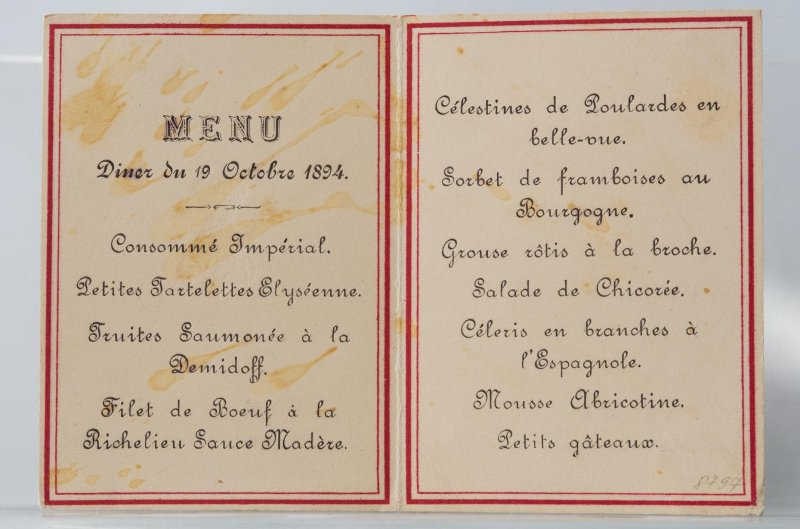 MENU
Diner du 19 Octobre 1894.
Consommé Impérial.
Petites Tartelettes Elyséenne.
Truites Saumonée à la
Demidoff.
Filet de Boeuf à la
Richelieu Sauce Madère.
Célestines de Poulardes en
belle-vue.
Sorbet de framboises au
Bourgogne.
Grouse rôtis à la broche.
Salade de Chicorée.
Céleris en branches à
l'Espagnole.
Mousse Abricotine.
Petits gâteaux.
8797